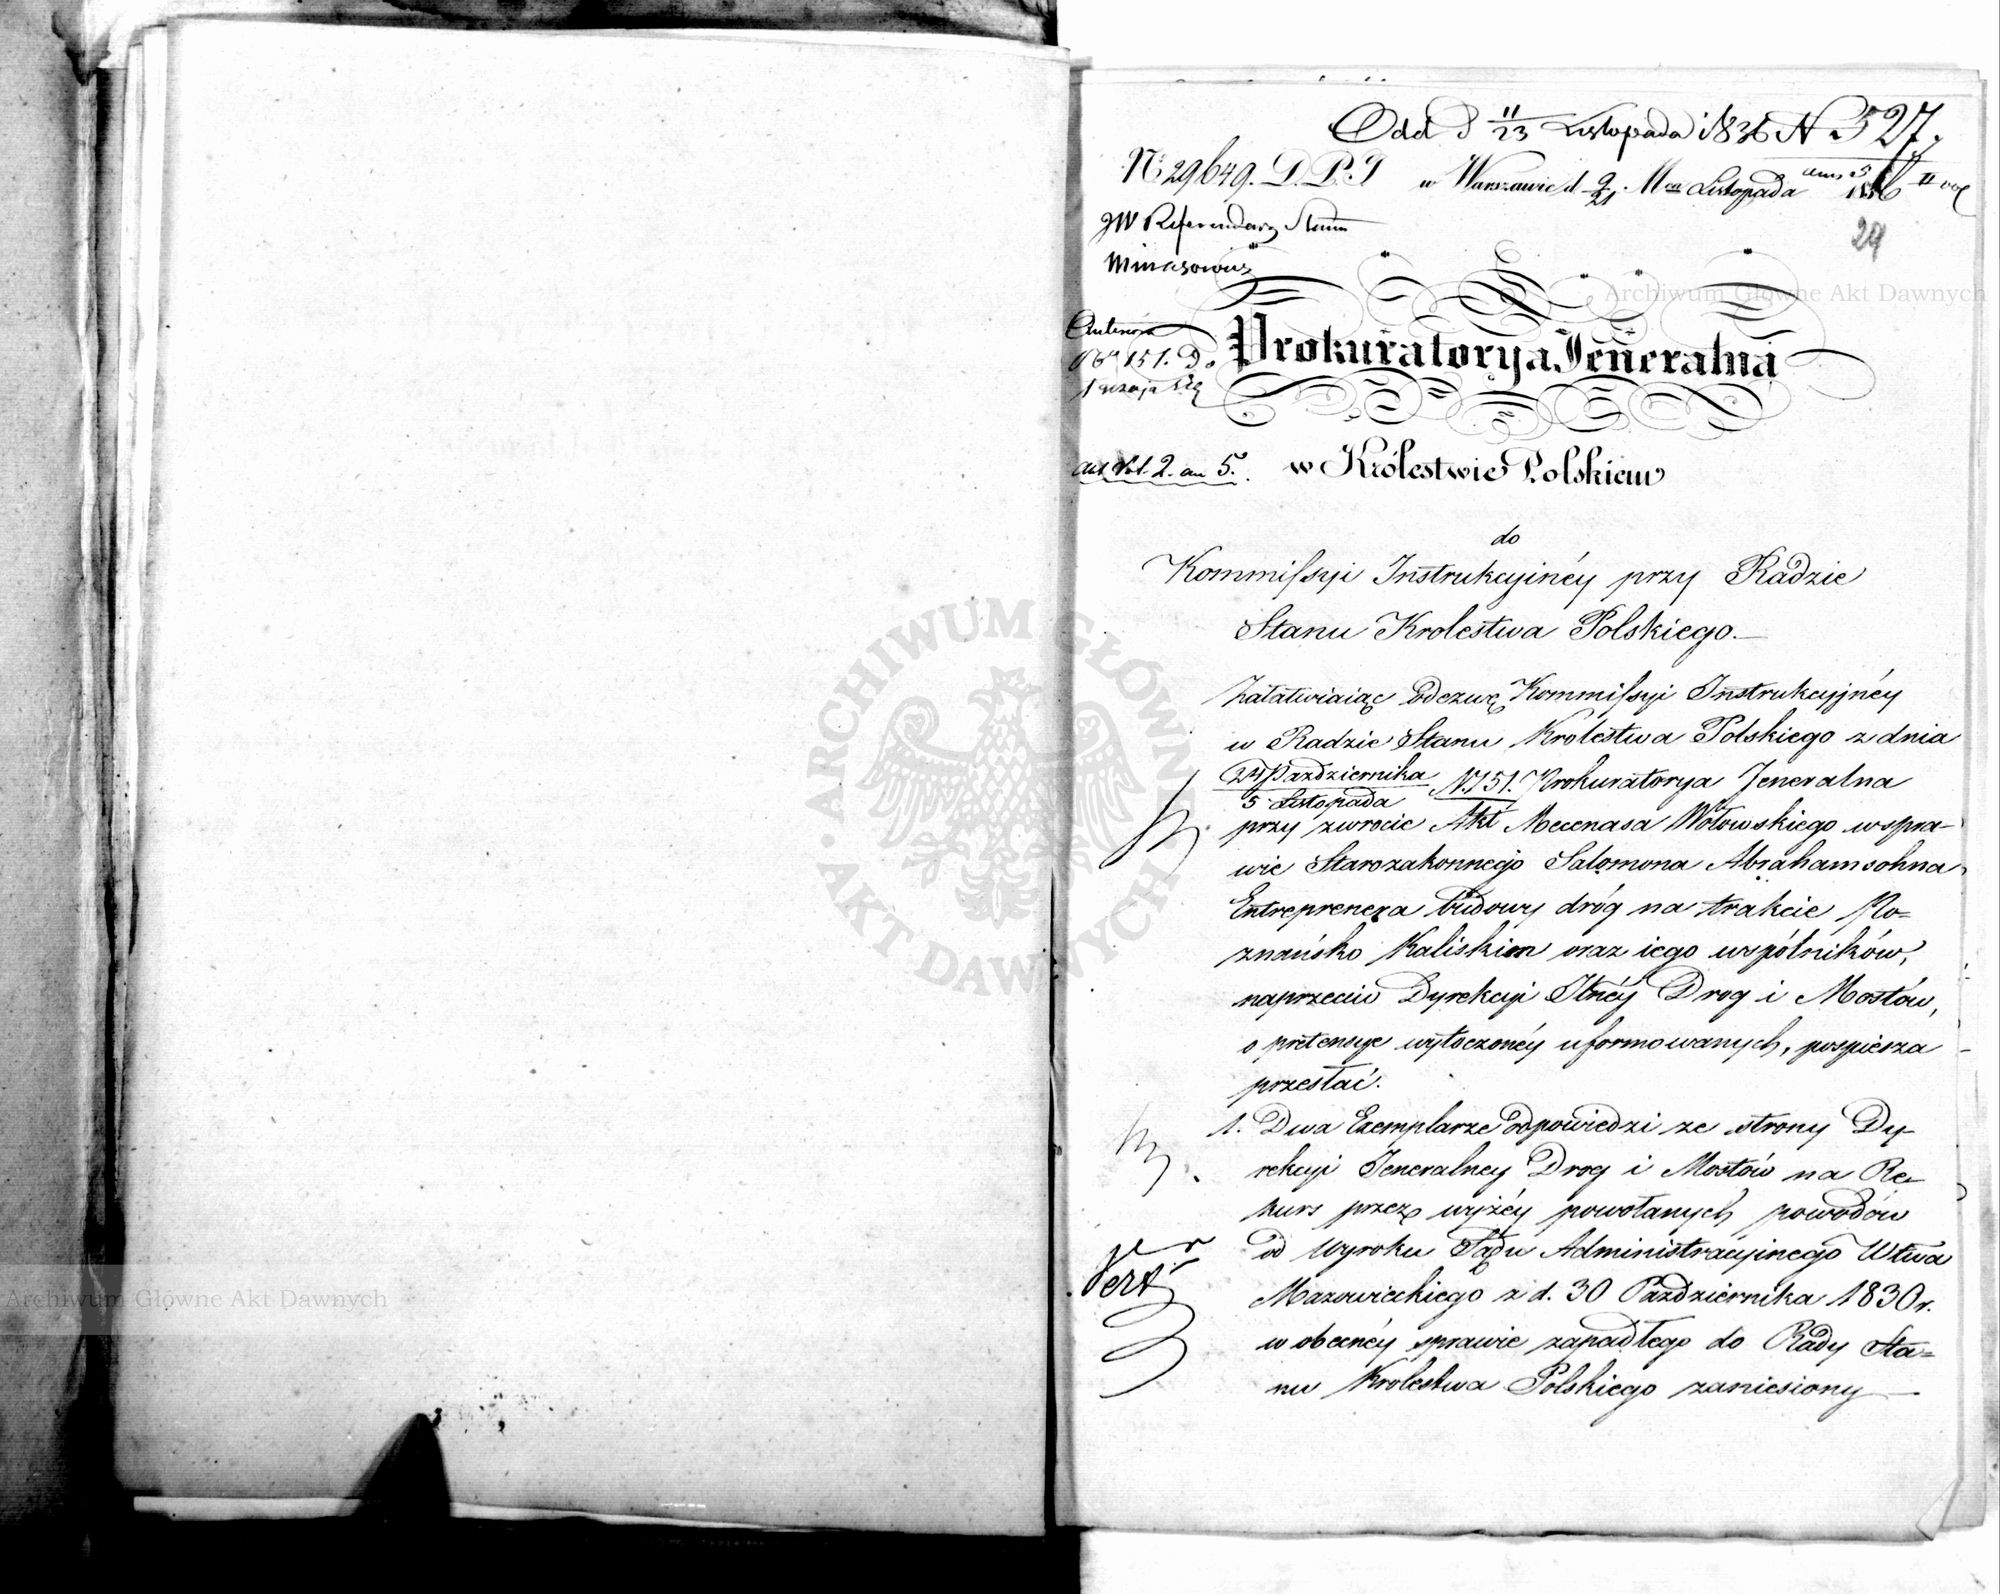 Odd d 11/23 Listopada 1836 N 527.
N. 29649. D. P. J w Warszawie d. 9/21. Mca Listopada 1836
JW Referendarz Stanu
Minasowicz
Prokuratorya Jeneralna
w Królestwie Polskiem
ad Vol. 2. an 5.
do
Kommissyi Instrukcyinéy przy Radzie
Stanu Krolestwa Polskiego.
Załatwiaiąc Odezwę Kommissyi Instrukcyjnéy
w Radzie Stanu Królestwa Polskiego z dnia
24 Października / 5 Listopada N. 151. Prokuratorya Jeneralna
przy zwrocie Akt Mecenasa Wołowskiego w spra-
wie Starozakonnego Salomona Abrahamsohna
Entreprenera budowy dróg na trakcie Po=
znańsko Kaliskim oraz iego wspólników,
naprzeciw Dyrekcyi Jlnéy Drog i Mostów,
o pretensye wytoczonéy uformowanych, pospiesza
przesłać.
1. Dwa Exemplarze Odpowiedzi ze strony Dy-
rekcyi Jeneralney Drog i Mostów na Re-
kurs przez wyżéy powołanych powodów
od Wyroku Sądu Administracyinego Wtwa
Mazowieckiego z d. 30 Października 1830 r.
w obecnéy sprawie zapadłego do Rady Sta=
nu Królestwa Polskiego zaniesiony
Vert
29
Archiwum Główne Akt Dawnych
Archiwum Główne Akt Dawnych
ARCHIWUM GŁÓWNE AKT DAWNYCH